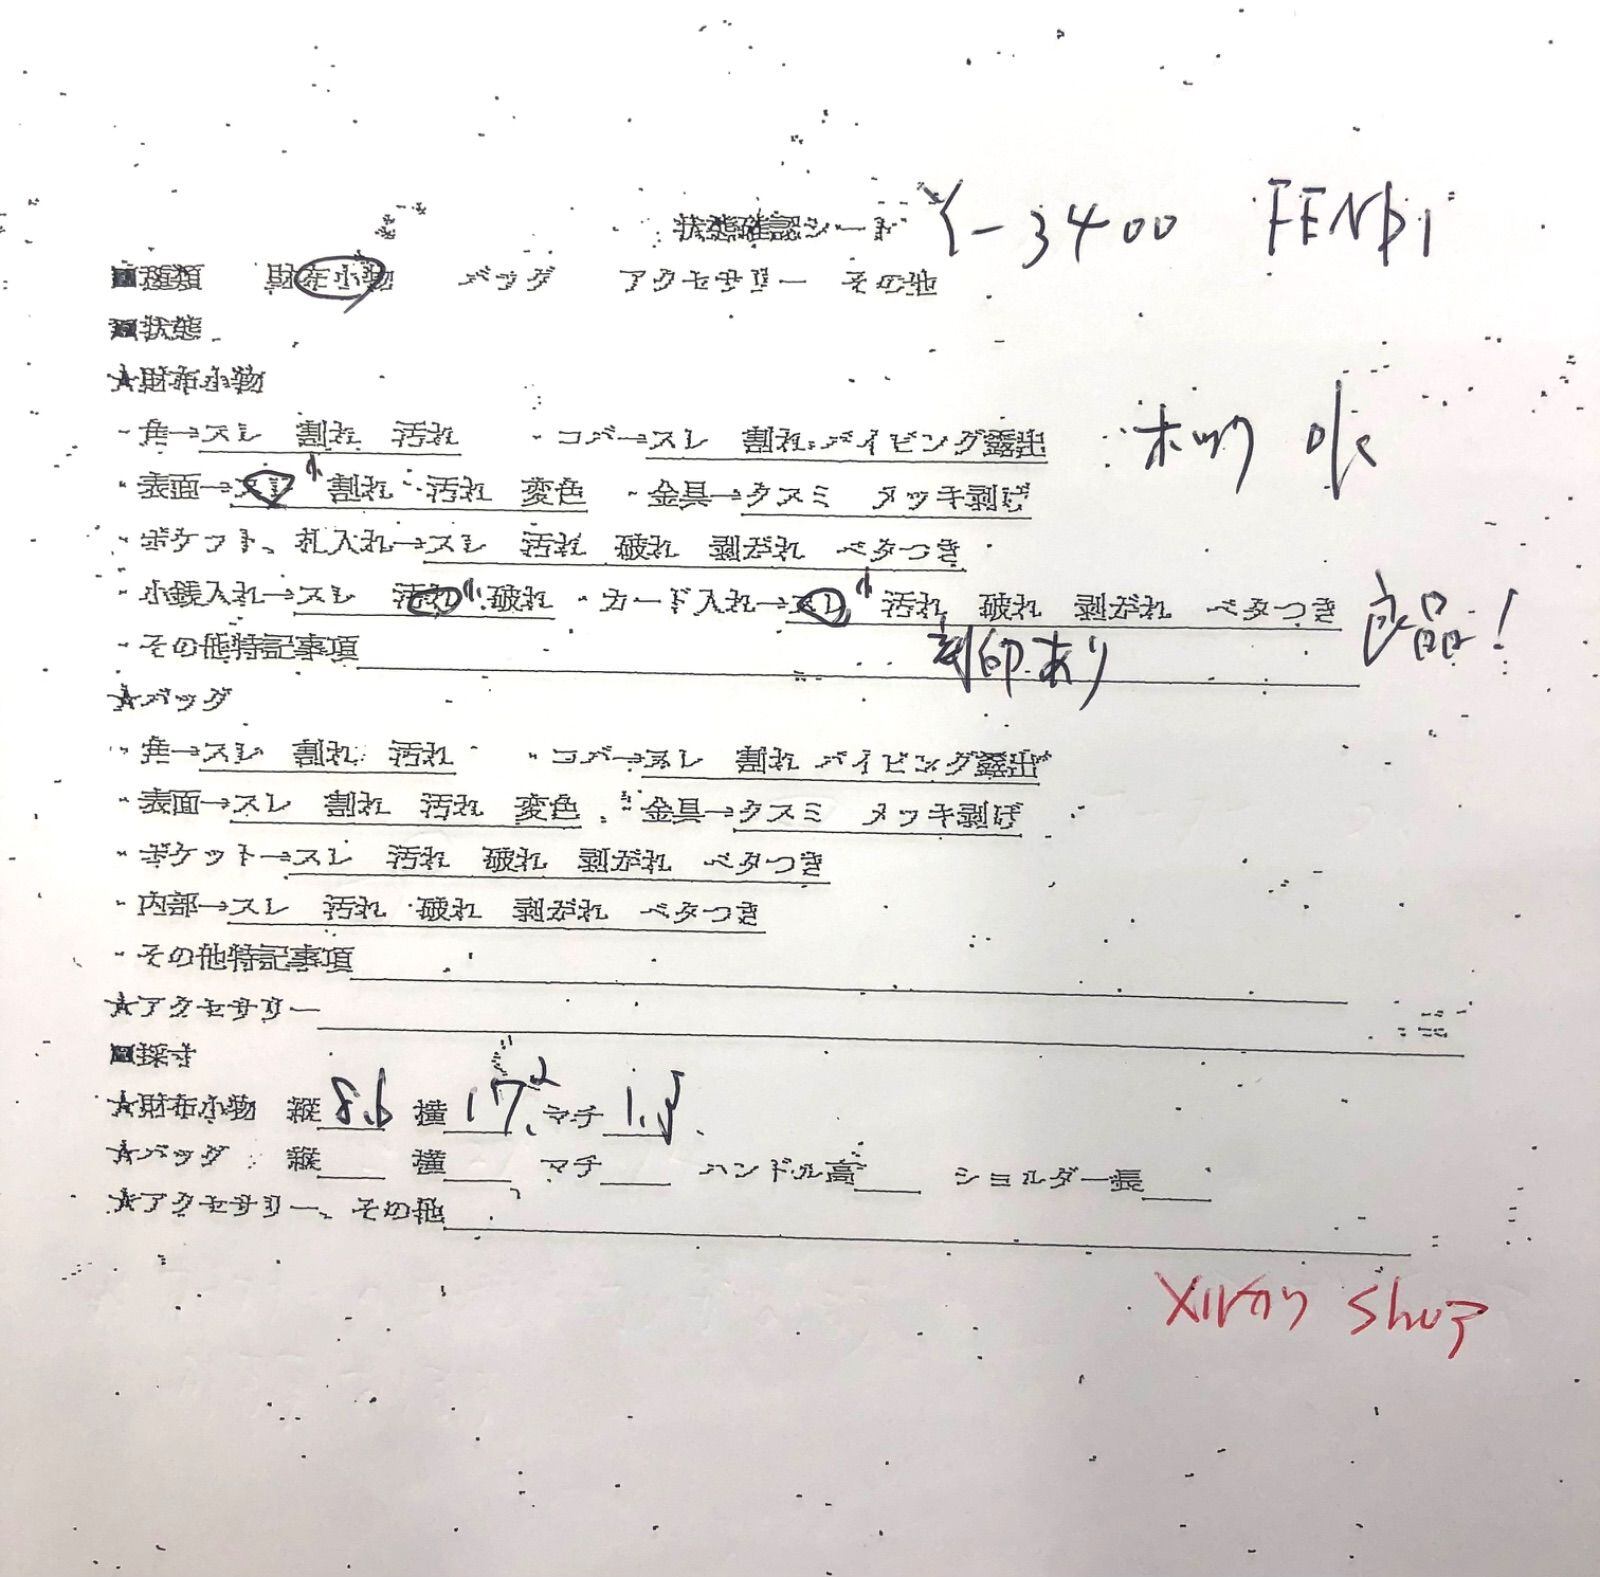 状態確認シート Y-3400 FENDI
■種類 財布小物 バッグ アクセサリー その他
■状態
★財布小物
・角→スレ 割れ 汚れ ・コバ→スレ 割れ パイピング露出
ホック OK
・表面→スレ 小 割れ 汚れ 変色 ・金具→クスミ メッキ剥げ
・ポケット、札入れ→スレ 汚れ 破れ 剥がれ ベタつき
・小銭入れ→スレ 汚れ 小 破れ ・カード入れ→スレ 小 汚れ 破れ 剥がれ ベタつき 良品!
・その他特記事項 刻印あり
★バッグ
・角→スレ 割れ 汚れ ・コバ→スレ 割れ パイピング露出
・表面→スレ 割れ 汚れ 変色 ・金具→クスミ メッキ剥げ
・ポケット→スレ 汚れ 破れ 剥がれ ベタつき
・内部→スレ 汚れ 破れ 剥がれ ベタつき
・その他特記事項
★アクセサリー
■採寸
★財布小物 縦 8.6 横 17.2 マチ 1.5
★バッグ 縦 横 マチ ハンドル高 ショルダー長
★アクセサリー、その他
メルカリ